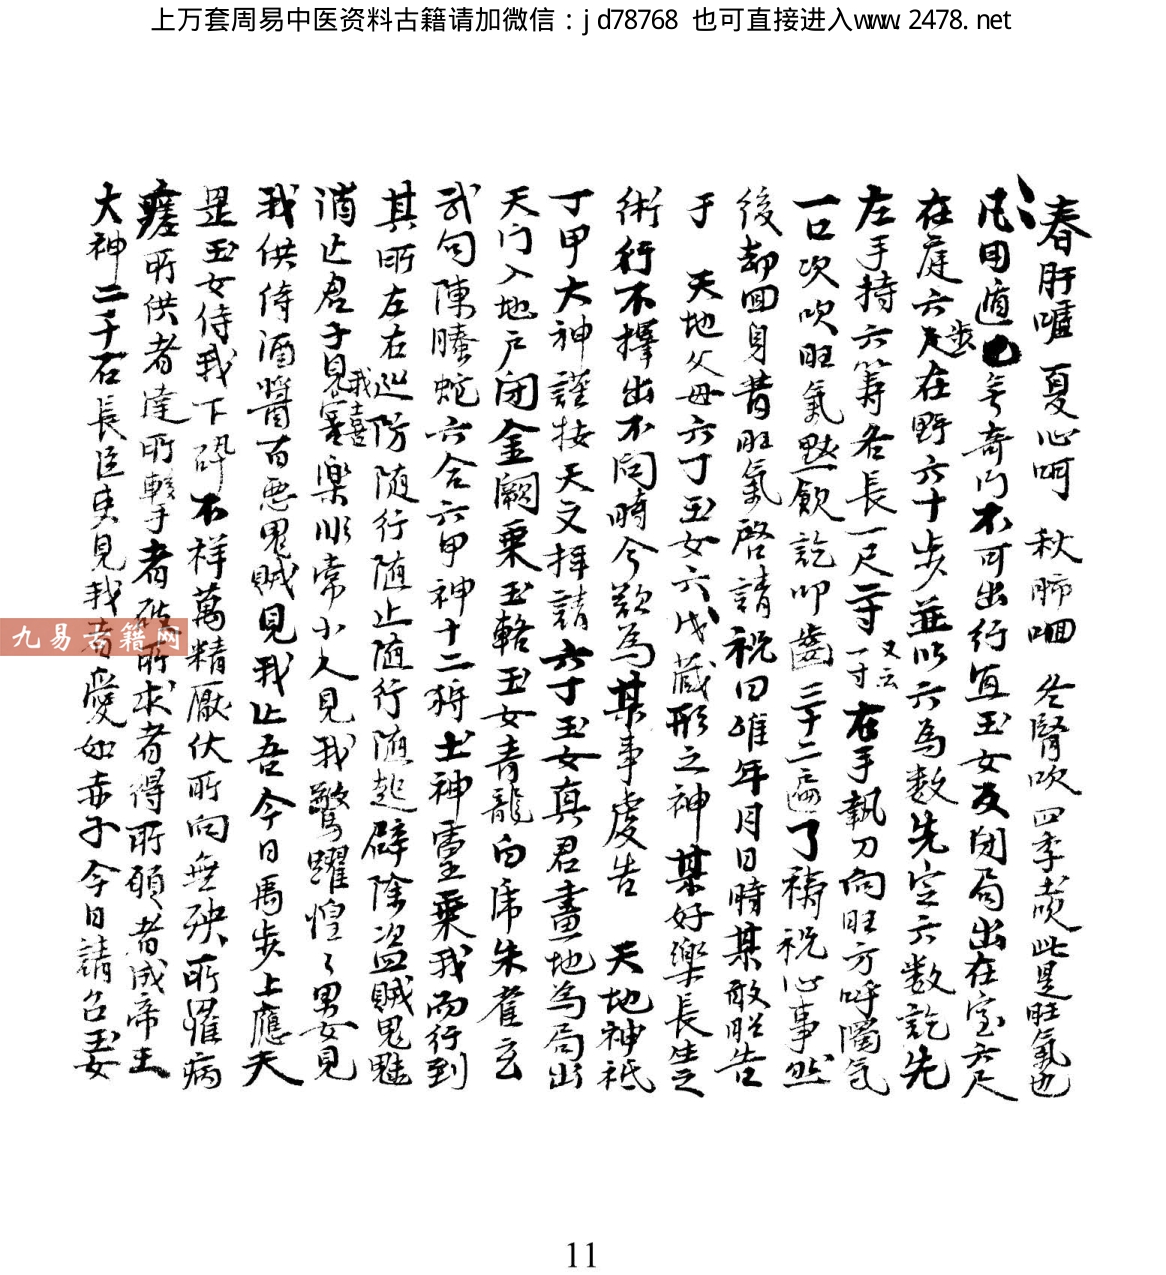 上万套周易中医资料古籍请加微信：jd78768 也可直接进入www.2478.net
春肝嘘 夏心呵 秋肺呬 冬腎吹 四季此是旺氣也
凡用遁奇门不可出行宜玉女反闭局出在室六尺
在庭六尺步在野六十步並以六為数先定六数訖先
左手持六筭各長一尺二寸又云一寸在手執刀向旺方呼濁氣
一口次吹旺氣一飲訖叩齒三十二遍了禱祝心事然
後却回身背旺氣啓請祝曰維年月日時某敢昭告
于 天地父母六丁玉女六戊藏形之神某好樂長生之
術行不擇出不问時今欲為某事虔告 天地神祇
丁甲大神謹按天文拜請六丁玉女真君畫地為局出
天门入地户闭金闕乘玉輅玉女青龍白虎朱雀玄
武句陳螣蛇六合六甲神十二将土神霊乘我而行到
其所左右巡防随行随止随行随起辟除盗賊鬼魅
消亡君子見我喜樂常小人見我驚躍惶々男女見
我供侍酒醬百悪鬼賊見我止吾今日禹步上應天
罡玉女侍我下碎不祥萬精厭伏所向無殃所罹病
瘥所供者達所擊者破所求者得所願者成帝王
大神二千石長臣吏見我者愛如赤子今日請召玉女
九易古籍网
11